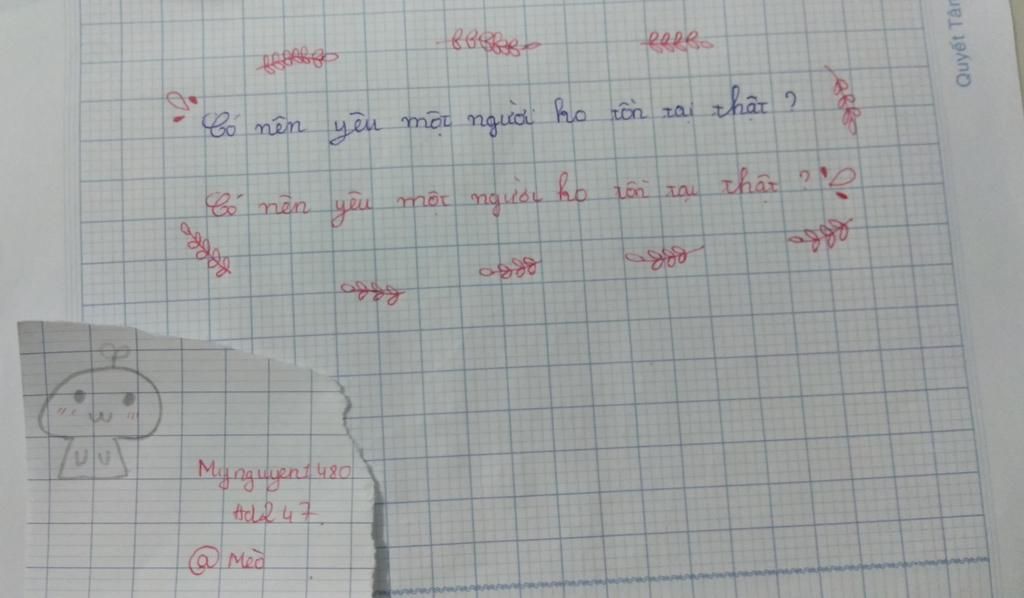 Quyết Tâm
Có nên yêu một người ko tồn tại thật ?
Có nên yêu một người ko tồn tại thật ?
Mynguyen1480
Ad247
@ Mèo